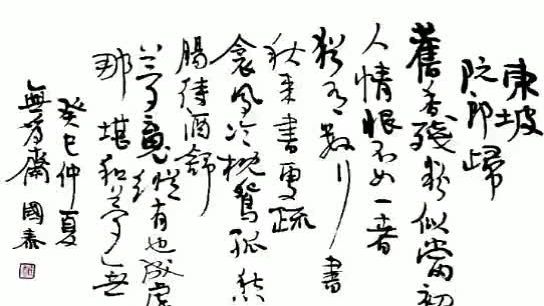 東坡
阮郎歸
舊香殘粉似當初
人情恨不如一春
猶有數行書
秋来書更疏
衾鳳冷枕鴛孤愁
腸待酒舒
夢魂縱有也成虛
那堪和夢無
癸巳仲夏
無齋國泰